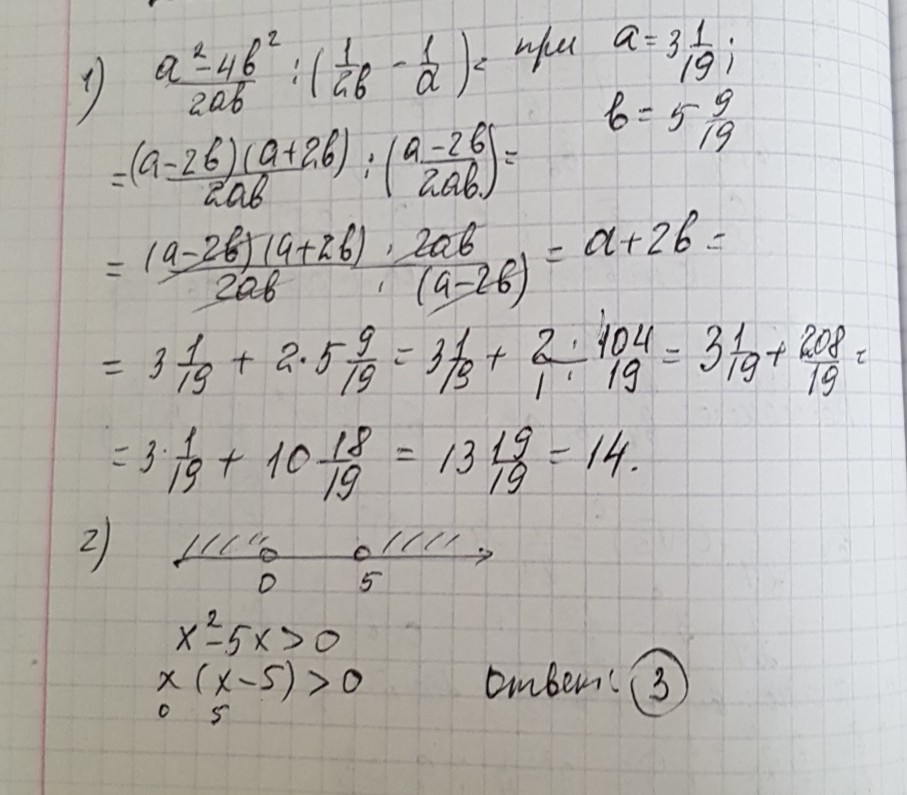 1) (a²-4b²)/(2ab) : (1/(2b) - 1/a) = при a = 3 1/19;
b = 5 9/19
= ((a-2b)(a+2b))/(2ab) : ((a-2b)/(2ab)) =
= ((a-2b)(a+2b))/(2ab) · (2ab)/((a-2b)) = a+2b =
= 3 1/19 + 2·5 9/19 = 3 1/19 + 2/1 · 104/19 = 3 1/19 + 208/19 =
= 3 1/19 + 10 18/19 = 13 19/19 = 14.
2)
0 5
x²-5x>0
x(x-5)>0 Ответ: 3
0 5